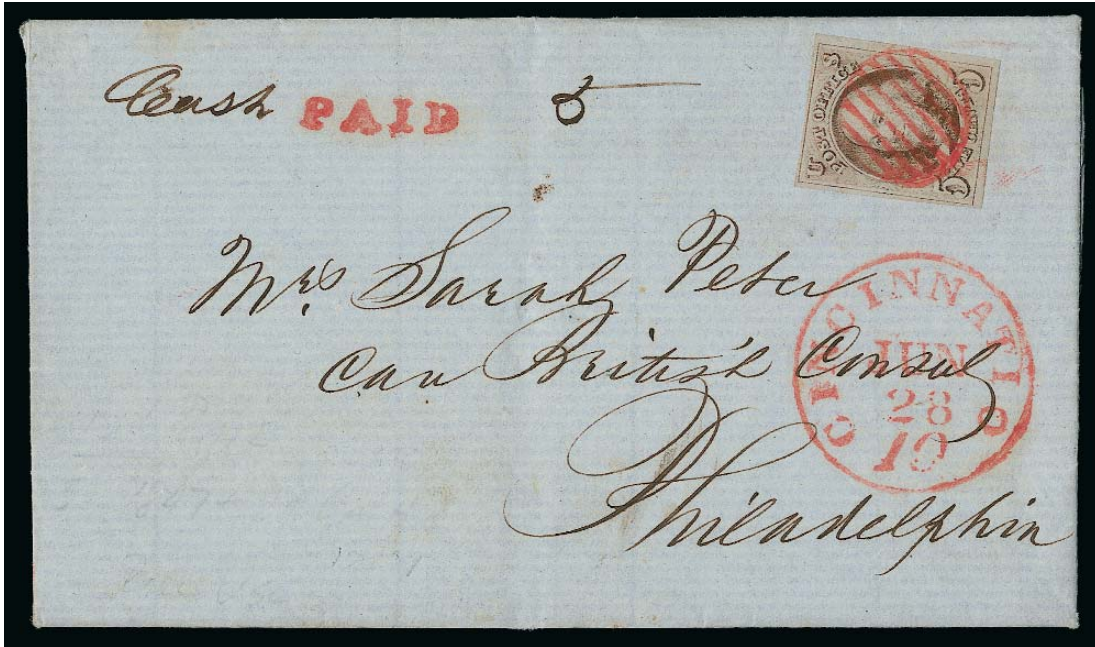 Cash PAID 5
POST OFFICE
5 5
Mrs Sarah Peter
Care British Consul
Philadelphia
CINCINNATI O
JUN
28
10